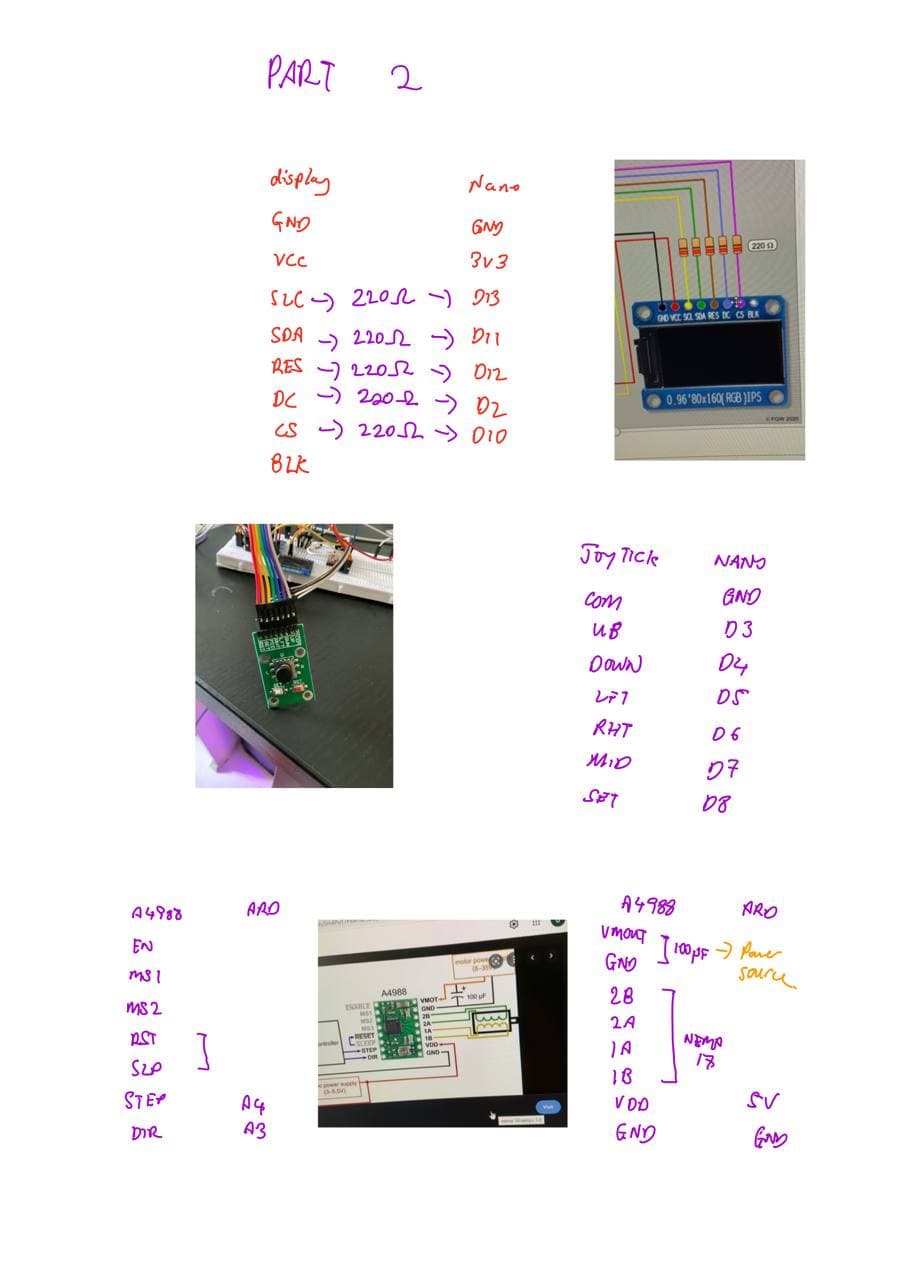 PART 2
display Nano
GND GND
VCC 3V3
SLC → 220Ω → D13
SDA → 220Ω → D11
RES → 220Ω → D12
DC → 220Ω → D2
CS → 220Ω → D10
BLK
220 Ω
GND VCC SCL SDA RES DC CS BLK
0.96'80x160(RGB)IPS
© FGW 2020
JOYTICK NANO
COM GND
UB D3
DOWN D4
LFT D5
RHT D6
MID D7
SET D8
A4988 ARD
EN
MS1
MS2
RST
SLP
STEP A4
DIR A3
motor power
A4988
VMOT
100 µF
GND
ENABLE
MS1
MS2
MS3
RESET
SLEEP
STEP
DIR
2B
2A
1A
1B
VDD
GND
power supply
(3–5.5V)
Visit
A4988 ARD
VMOUT
GND
100µF → Power source
2B
2A
1A
1B
NEMA 17
VDD 5V
GND GND